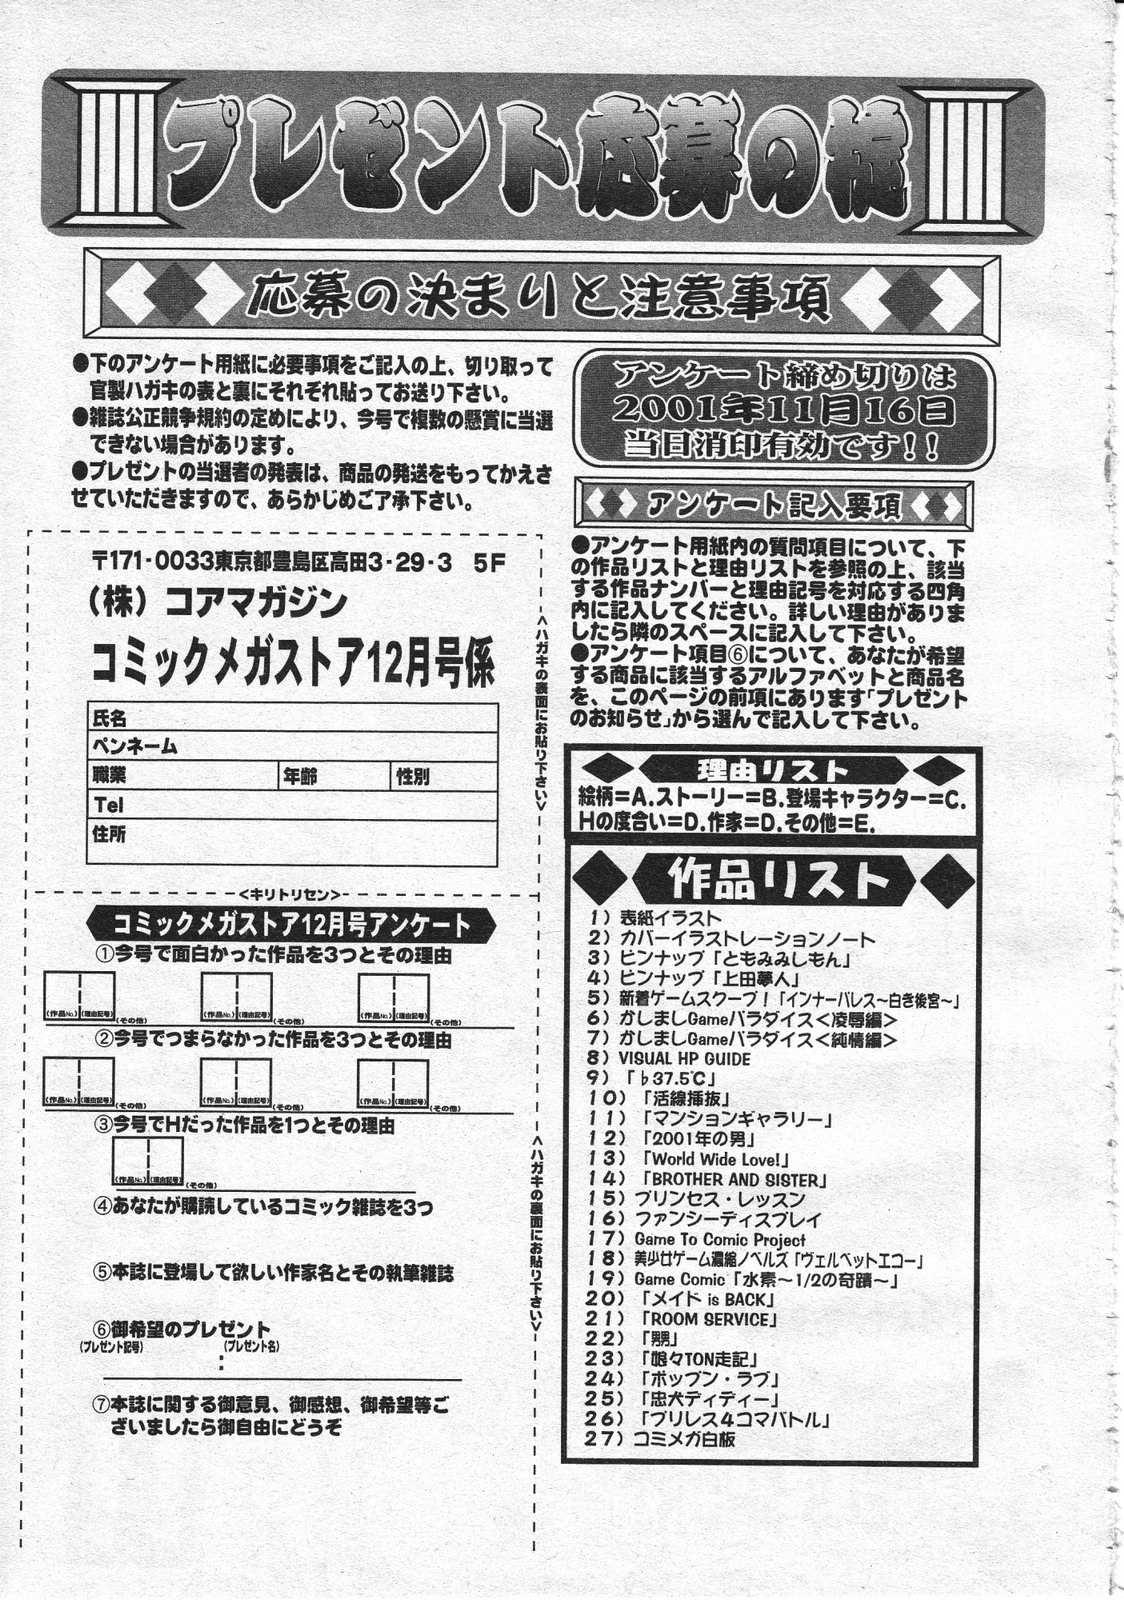 プレゼント応募の掟
応募の決まりと注意事項
●下のアンケート用紙に必要事項をご記入の上、切り取って
官製ハガキの表と裏にそれぞれ貼ってお送り下さい。
●雑誌公正競争規約の定めにより、今号で複数の懸賞に当選
できない場合があります。
●プレゼントの当選者の発表は、商品の発送をもってかえさ
せていただきますので、あらかじめご了承下さい。
アンケート締め切りは
2001年11月16日
当日消印有効です!!
アンケート記入要項
●アンケート用紙内の質問項目について、下
の作品リストと理由リストを参照の上、該当
する作品ナンバーと理由記号を対応する四角
内に記入してください。詳しい理由がありま
したら隣のスペースに記入して下さい。
●アンケート項目⑥について、あなたが希望
する商品に該当するアルファベットと商品名
を、このページの前項にあります「プレゼント
のお知らせ」から選んで記入して下さい。
〒171-0033東京都豊島区高田3-29-3 5F
(株)コアマガジン
コミックメガストア12月号係
氏名
ペンネーム
職業 年齢 性別
Tel
住所
<ハガキの表面にお貼り下さい>
<キリトリセン>
コミックメガストア12月号アンケート
①今号で面白かった作品を3つとその理由
(作品No.) (理由記号) (その他) (作品No.) (理由記号) (その他) (作品No.) (理由記号) (その他)
②今号でつまらなかった作品を3つとその理由
(作品No.) (理由記号) (その他) (作品No.) (理由記号) (その他) (作品No.) (理由記号) (その他)
③今号でHだった作品を1つとその理由
(作品No.) (理由記号) (その他)
④あなたが購読しているコミック雑誌を3つ
⑤本誌に登場して欲しい作家名とその執筆雑誌
⑥御希望のプレゼント
(プレゼント記号) (プレゼント名)
:
⑦本誌に関する御意見、御感想、御希望等ご
ざいましたら御自由にどうぞ
<ハガキの裏面にお貼り下さい>
理由リスト
絵柄=A.ストーリー=B.登場キャラクター=C.
Hの度合い=D.作家=D.その他=E.
作品リスト
1)表紙イラスト
2)カバーイラストレーションノート
3)ピンナップ「ともみみしもん」
4)ピンナップ「上田夢人」
5)新着ゲームスクープ!「インナーパレス～白き後宮～」
6)かしましGameパラダイス<凌辱編>
7)かしましGameパラダイス<純情編>
8)VISUAL HP GUIDE
9)「♭37.5℃」
10)「活線挿抜」
11)「マンションギャラリー」
12)「2001年の男」
13)「World Wide Love!」
14)「BROTHER AND SISTER」
15)プリンセス・レッスン
16)ファンシーディスプレイ
17)Game To Comic Project
18)美少女ゲーム濃縮ノベルズ「ヴェルベットエコー」
19)Game Comic「水素～1/2の奇蹟～」
20)「メイド is BACK」
21)「ROOM SERVICE」
22)「嬲」
23)「娘々TON走記」
24)「ポップン・ラブ」
25)「忠犬ディディー」
26)「プリレス4コマバトル」
27)コミメガ白板